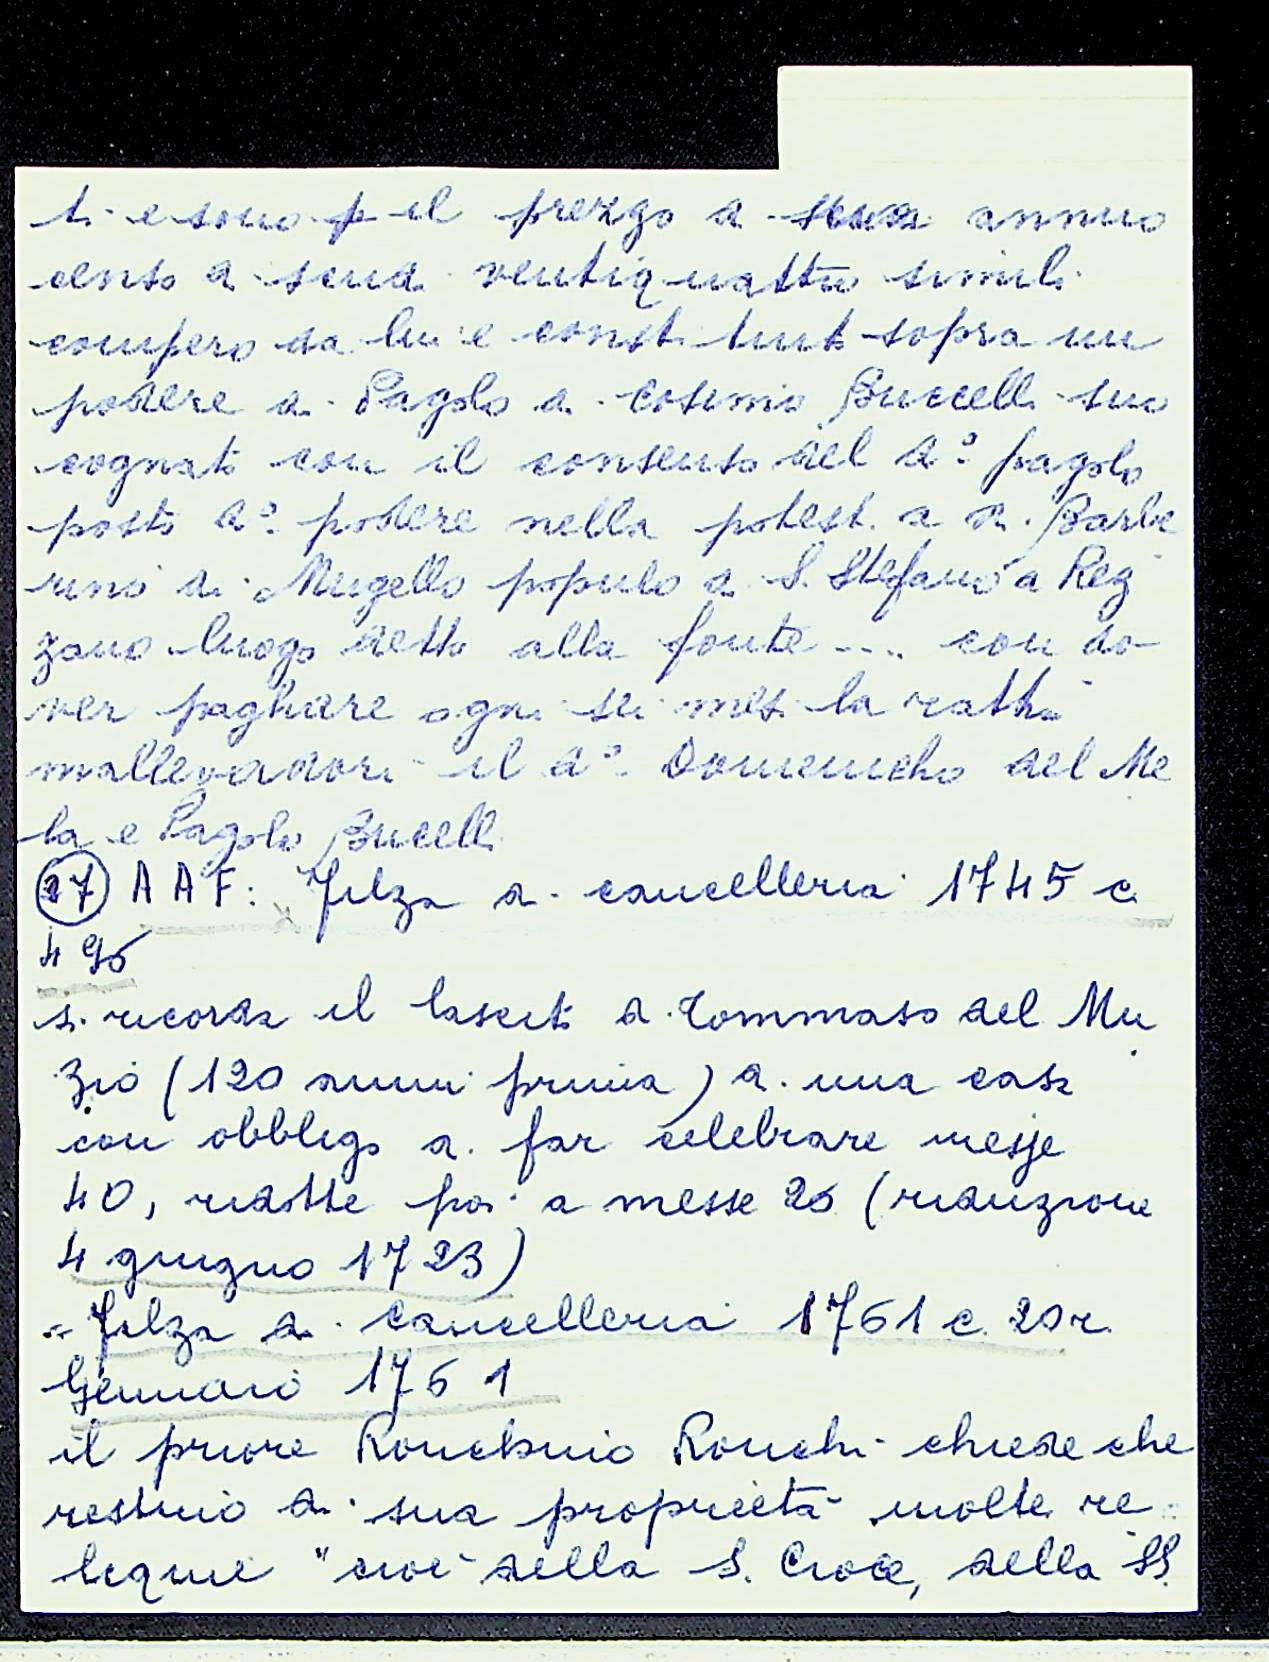 ti e sono p il prezzo di annuo
censo di scudi ventiquattro simili
compero da lui e constituiti sopra un
podere di Pagolo di Cosimo Buccelli suo
cognato con il consenso del dº pagolo
posto dº podere nella potest. a di Barbe
rino di Mugello popolo di S. Stefano a Rez
zano luogo detto alla fonte .... con do-
ver paghare ogni sei mesi la ratta
mallevadori il dº Domenicho del Me
la e Pagolo Bucelli
(27) AAF: Filza di cancelleria 1745 c.
495
si ricorda il lascito di Tommaso del Mu
zio (120 anni prima) di una casa
con obbligo di far celebrare messe
40, ridotte poi a messe 26 (riduzione
4 giugno 1723)
= Filza di cancelleria 1761 c. 20r.
Gennaio 1761
il priore Ronchino Ronchi chiede che
restino di sua proprietà molte re
liquie "cioè della S. Croce, della SS.